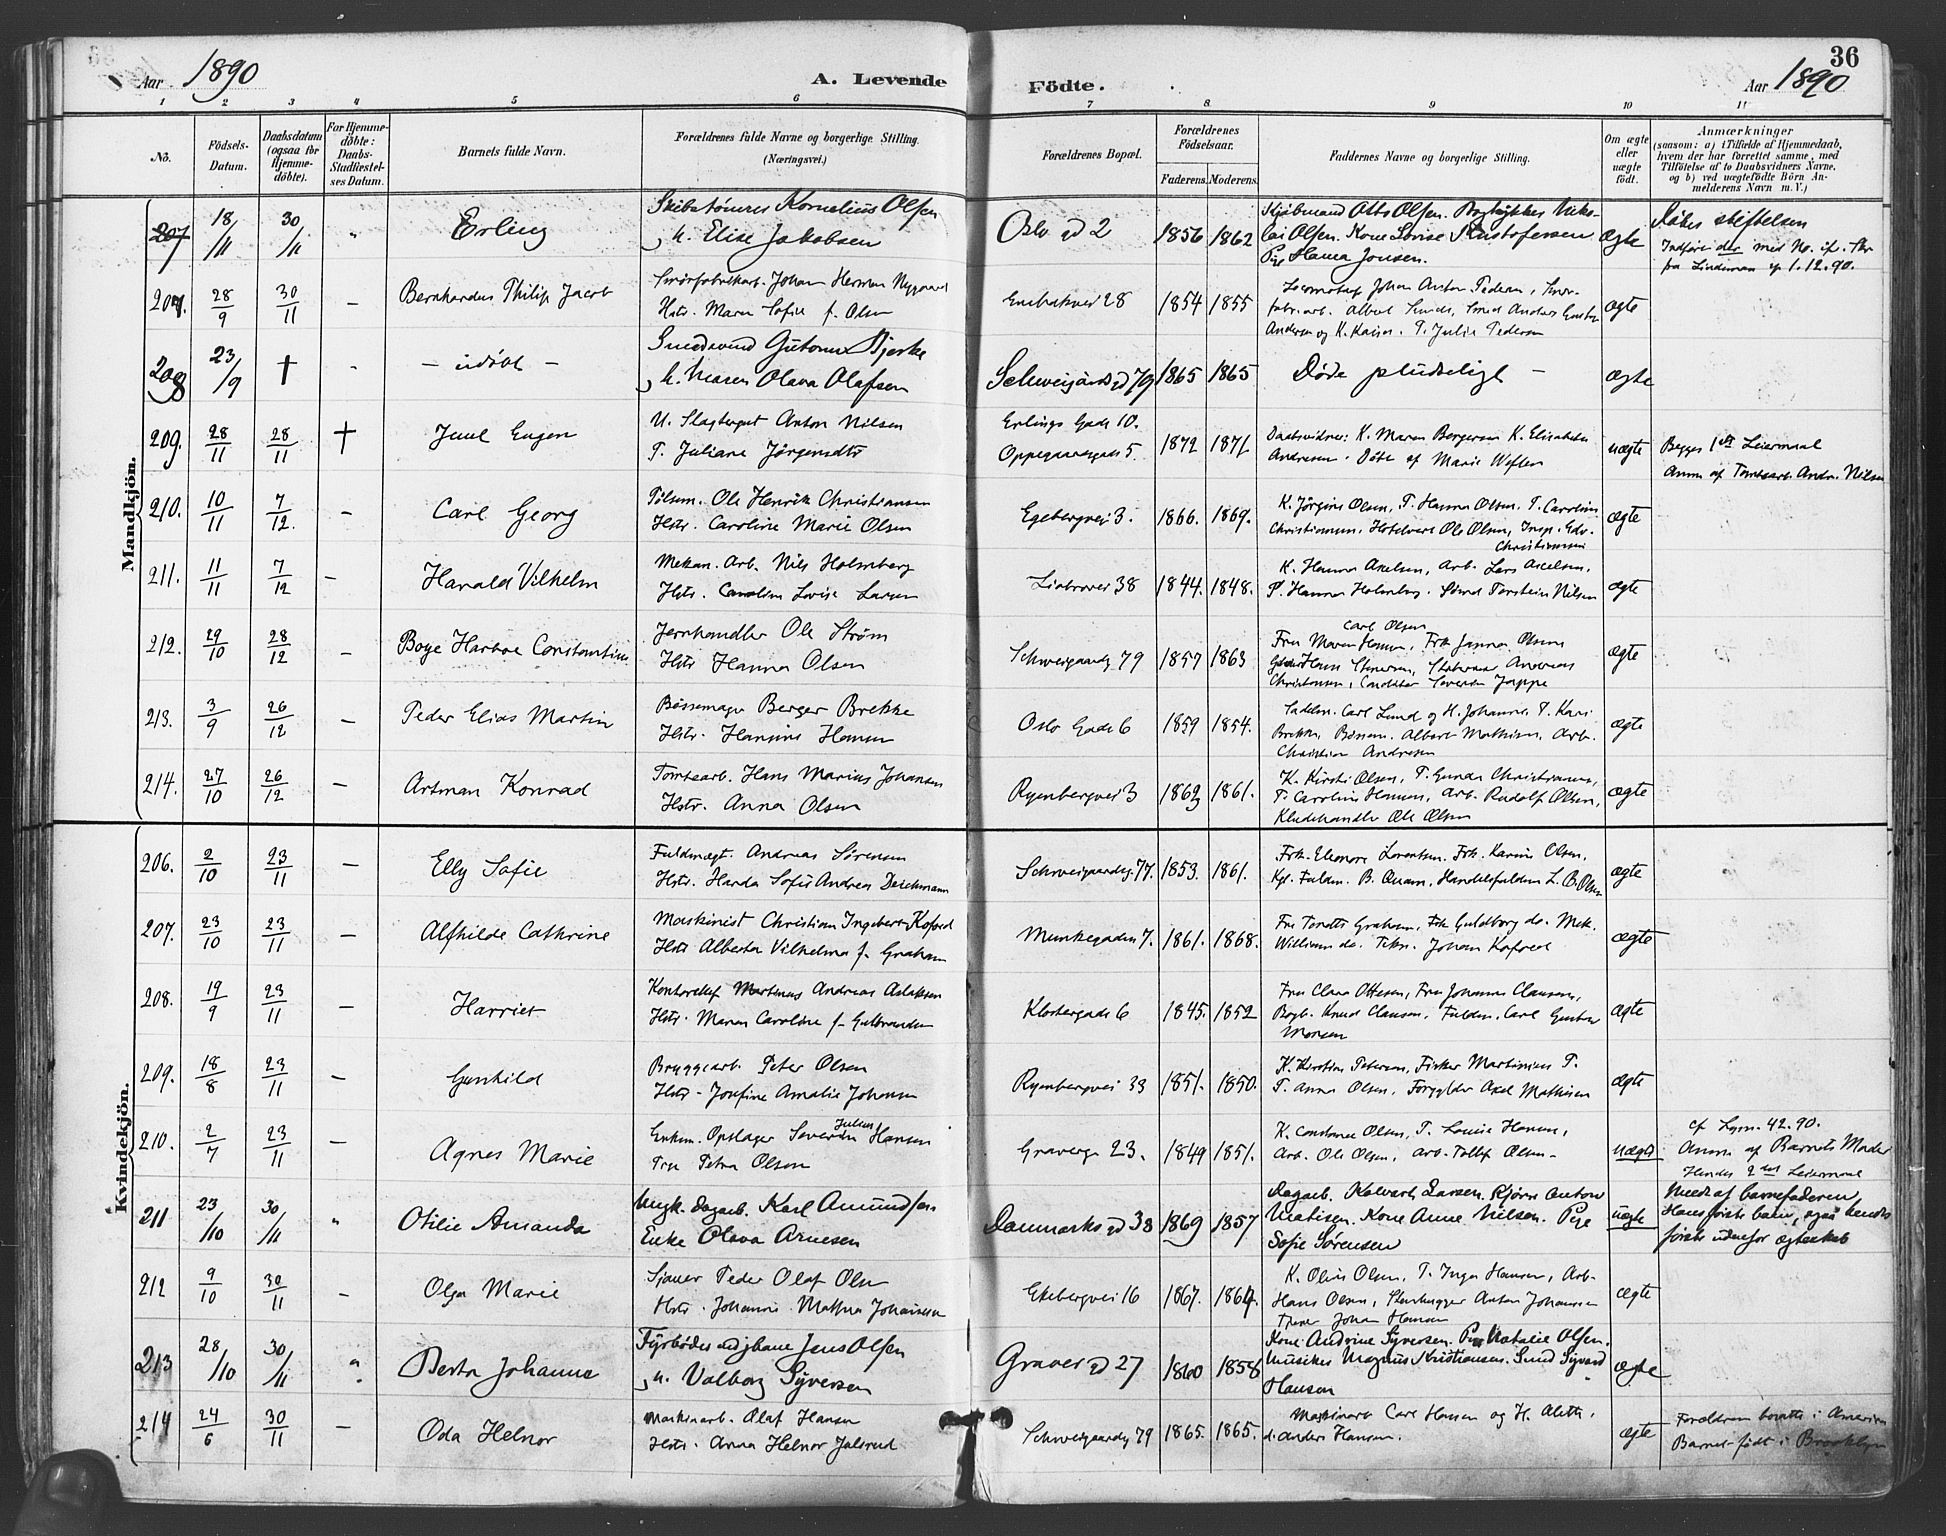 Aar 1890 A. Levende Fødte. Aar 1890 36
1 2 3 4 5 6 7 8 9 10 11
No. Fødsels-Datum. Daabsdatum (ogsaa for Hjemmedöbte). For Hjemmedöbte: Daabs-Stadfæstelses Datum. Barnets fulde Navn. Forældrenes fulde Navne og borgerlige Stilling. (Næringsvei.) Forældrenes Bopæl. Forældrenes Födselsaar. Faderens. Moderens. Faddernes Navne og borgerlige Stilling. Om ægte eller uægte födt. Anmærkninger (saasom: a) i Tilfælde af Hjemmedaab, hvem der har forrettet samme, med Tilföielse af to Daabsvidners Navne, og b) ved uægtefödte Börn Anmelderens Navn m. V.)
Mandkjön.
207 18/11 30/11 " Erling
Kornelius Olsen
h. Elise Jakobsen
Oslo gd 2 1856 1862
Kjøbmand Otto Olsen.
Olsen. Kone Lovise Kristofersen
Pige Hanna Jonsen.
ægte
stiftelsen
1.12.90.
207. 28/9 30/11 – Bernhardus Philip Jacob
Johan Herman Nygaard
Hstr. Maren Sofie f. Olsen
Enebakvei 28 1854 1855
Johan Anton Pedersen,
Albert
T. Julie Pedersen
ægte
208 23/9 † - – udøbt –
h. Maren Olava Olafsen
Schweigårds gd 79 1865 1865 Døde pludseligt – ægte
209. 28/11 28/11 † Juul Eugen
U. Slagtergut Anton Nilsen
P. Juliane Jørgensdtr
Erlings Gade 10.
Oppegaardgade 5. 1872 1871
Daabsvidner: K. Maren Bergersen K. Elisabeth
Andresen. Døbt af Marie
uægte
Begges 1ste Leiermaal
Anm. af Tomtearb. Andr. Nilsen
210. 10/11 7/12. – Carl Georg
Ole Henrik Christiansen
Hstr. Caroline Marie Olsen
Egebergvei 3. 1866. 1869.
K. Jørgine Olsen, P. Hanna Olsen. P. Caroline
Christiansen. Ole Olsen, Insp. Edv.
Christiansen
ægte
211. 11/11 7/12 – Harald Vilhelm
Mekan. Arb. Nils Holmberg
Hstr. Caroline Lovise Larsen
Liabrovei 38 1844. 1848.
K. Hanna Axelsen, Arb. Lars Axelsen,
P. Hanna Holmberg. Smed Torstein Nilsen
ægte
212. 29/10 28/12 – Boye Harboe Constantius
Jernhandler Ole Strøm
Hstr Hanna Olsen
Schweigaardsg 79 1857 1863
Carl Olsen
Fru Maren Hansen, Frk Janna Olsen
Andreas
Christensen, Severin Jappe
ægte
213. 3/9 26/12 – Peder Elias Martin
Bøssemager Berger Brekke
Hstr. Hansine Hansen
Oslo Gade 6 1859 1854.
Carl Lund og H. Johanne. P. Kari
Brekke, Albert Mathisen, Arb.
Christian Andresen
ægte
214. 27/10 26/12 – Artman Konrad
Tomtearb. Hans Marius Johansen
Hstr. Anna Olsen
Ryenbergvei 3 1863 1861.
K. Kirsti Olsen, P. Gunda Christiansen,
P. Caroline Hansen, Arb. Rudolf Olsen,
Kludehandler Ole Olsen
ægte
Kvindekjön.
206. 2/10 23/11 – Elly Sofie
Fuldmægt. Andreas Sørensen
Hstr. Harda Sofie Andrea Deichmann
Schweigaardsg. 77. 1853. 1861.
Frk. Eleonore Lorentsen. Frk. Karine Olsen,
Kgl. Fuldm. B. Quam, Handelsfuldm L. B. Olsen
ægte
207. 23/10 23/11 – Alfhilde Cathrine
Maskinist Christian Ingebert Kofoed
Hstr Alberta Vilhelmina f. Graham
Munkegaden 7. 1861. 1868.
Graham, Frk Guldborg do. Mek.
William do. Johan Kofoed
ægte
208. 19/9 23/11 – Harriet
Martinus Andreas Aslaksen
Hstr. Maren Caroline f. Gulbrandsen
Klostergade 6 1845. 1852
Fru Clara Ottesen, Fru Johanne Clausen,
Bogb. Knud Clausen, Fuldm. Carl Gustav
Monsen
ægte
209. 18/8 23/11 – Gunhild
Bryggearb. Peter Olsen
Hstr – Josefine Amalie Johansen
Ryenbergvei 33 1851. 1850.
K. Kirstine Petersen, Fisker Martinius P.
P. Anna Olsen, Forgylder Axel Mathisen
ægte
210. 2/7 23/11 – Agnes Marie
Enkem. Opslager Severin Julius Hansen
Pige Petra Olsen
Graverg. 23. 1849 1851.
K. Constance Olsen, P. Louise Hansen,
Arb. Ole Olsen, Arb. Tollef Olsen –
uægte
cf Lysn. 42.90.
Anm. af Barnets Moder
Hendes 2det Leiermaal
211 23/10 30/11 " Otilie Amanda
Ungk. Dagarb. Karl Amundsen
Enke Olava Arnesen
Danmarks gd 33 1869 1857
Dagarb. Halvard Larsen. Kjører Anton
Matisen. Kone Anne Nilsen. Pige
Sofie Sørensen
uægte
Meldt af barnefaderen,
Hans første barn, også hendes
første udenfor ægteskab
212 9/10 30/11 – Olga Marie
Sjauer Peder Olaf Olsen
Hstr. Johanne Mathea Johansen
Ekebergvei 16 1867. 1864.
K. Oline Olsen, P. Inga Hansen, Arb.
Hans Olsen, Stenhugger Anton Johansen
Johan Hansen
ægte
213 28/10 30/11 " Berta Johanne
Fyrbøder ved jbane Jens Olsen
h. Valborg Syversen
Graver gd 27 1860 1858
Kone Andrine Syversen. Pige Natalie Olsen.
Musiker Magnus Kristiansen. Smed Syvard
Hansen
ægte
214 24/6 30/11 – Oda Helnor
Maskinarb. Olaf Hansen
Hstr. Anna Helnor Julsrud
Schweigaardsg 79 1865. 1865.
Maskinarb Carl Hansen og H. Alette,
d. Anders Hansen.
ægte
Forældrene bosatte i Amerika
Barnet født i Brooklyn